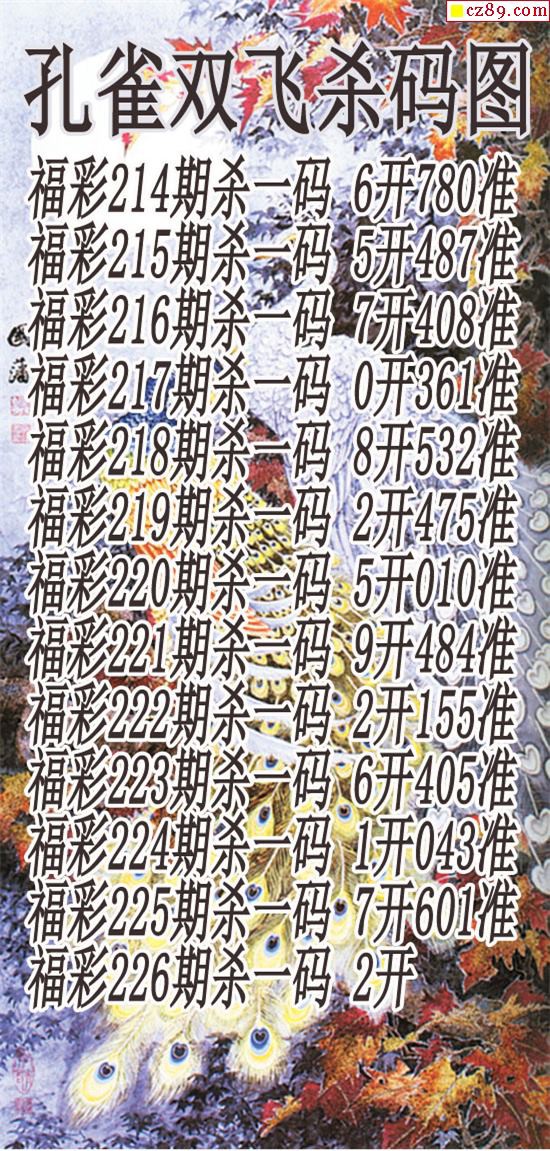 cz89.com
孔雀双飞杀码图
福彩214期杀一码 6开780准
福彩215期杀一码 5开487准
福彩216期杀一码 7开408准
福彩217期杀一码 0开361准
福彩218期杀一码 8开532准
福彩219期杀一码 2开475准
福彩220期杀一码 5开010准
福彩221期杀一码 9开484准
福彩222期杀一码 2开155准
福彩223期杀一码 6开405准
福彩224期杀一码 1开043准
福彩225期杀一码 7开601准
福彩226期杀一码 2开